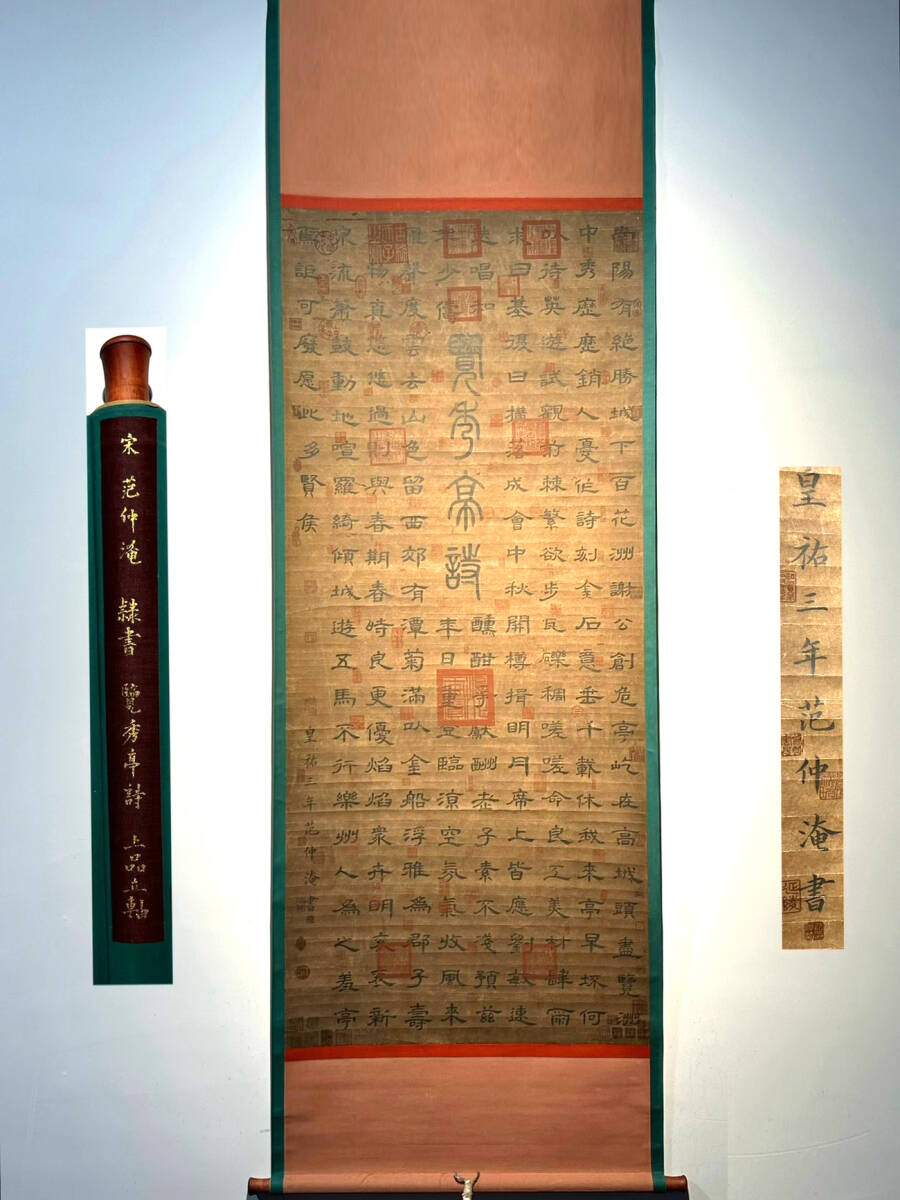 宋 范仲淹 隸書 覽秀亭詩 上品立軸
南陽有絕勝城下百花洲謝公創危亭屹在高城頭盡覽洲
中秀歷歷銷人憂作詩刻金石意垂千載休我來亭早坏何
以待英遊試觀荊棘繁欲步瓦礫稠嗟嗟命良工美材肆爾
求曰基復曰構落成會中秋開樽揖明月席上皆應劉敏速
迭唱和 醺酣爭獻酬老子素不淺預茲
年少儔 年日重登臨涼空氛氣收風來
覽秀亭詩
雁聲度雲去山色留西郊有潭菊滿以金船浮雅為郡子壽
物真悠悠過則與春期春時良更優焰焰衆卉明衮衮新
泉流簫鼓動地喧羅綺傾城遊五馬不行樂州人為之羞亭
焉詎可廢愿此多賢侯
皇祐三年范仲淹書
皇祐三年范仲淹書